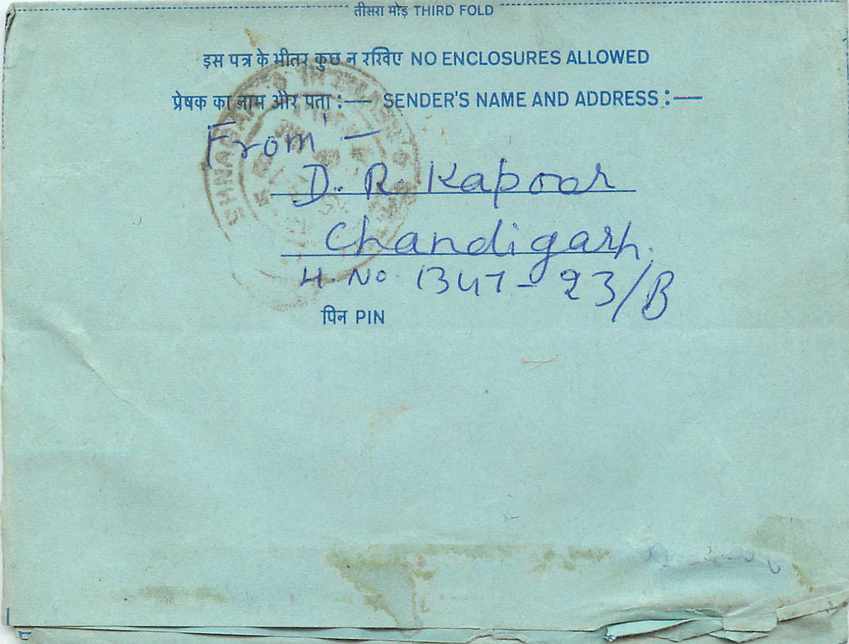 तीसरा मोड़ THIRD FOLD
इस पत्र के भीतर कुछ न रखिए NO ENCLOSURES ALLOWED
प्रेषक का नाम और पता :— SENDER'S NAME AND ADDRESS :—
From —
D. R. Kapoor
Chandigarh.
H. No. 1347-23/B
पिन PIN